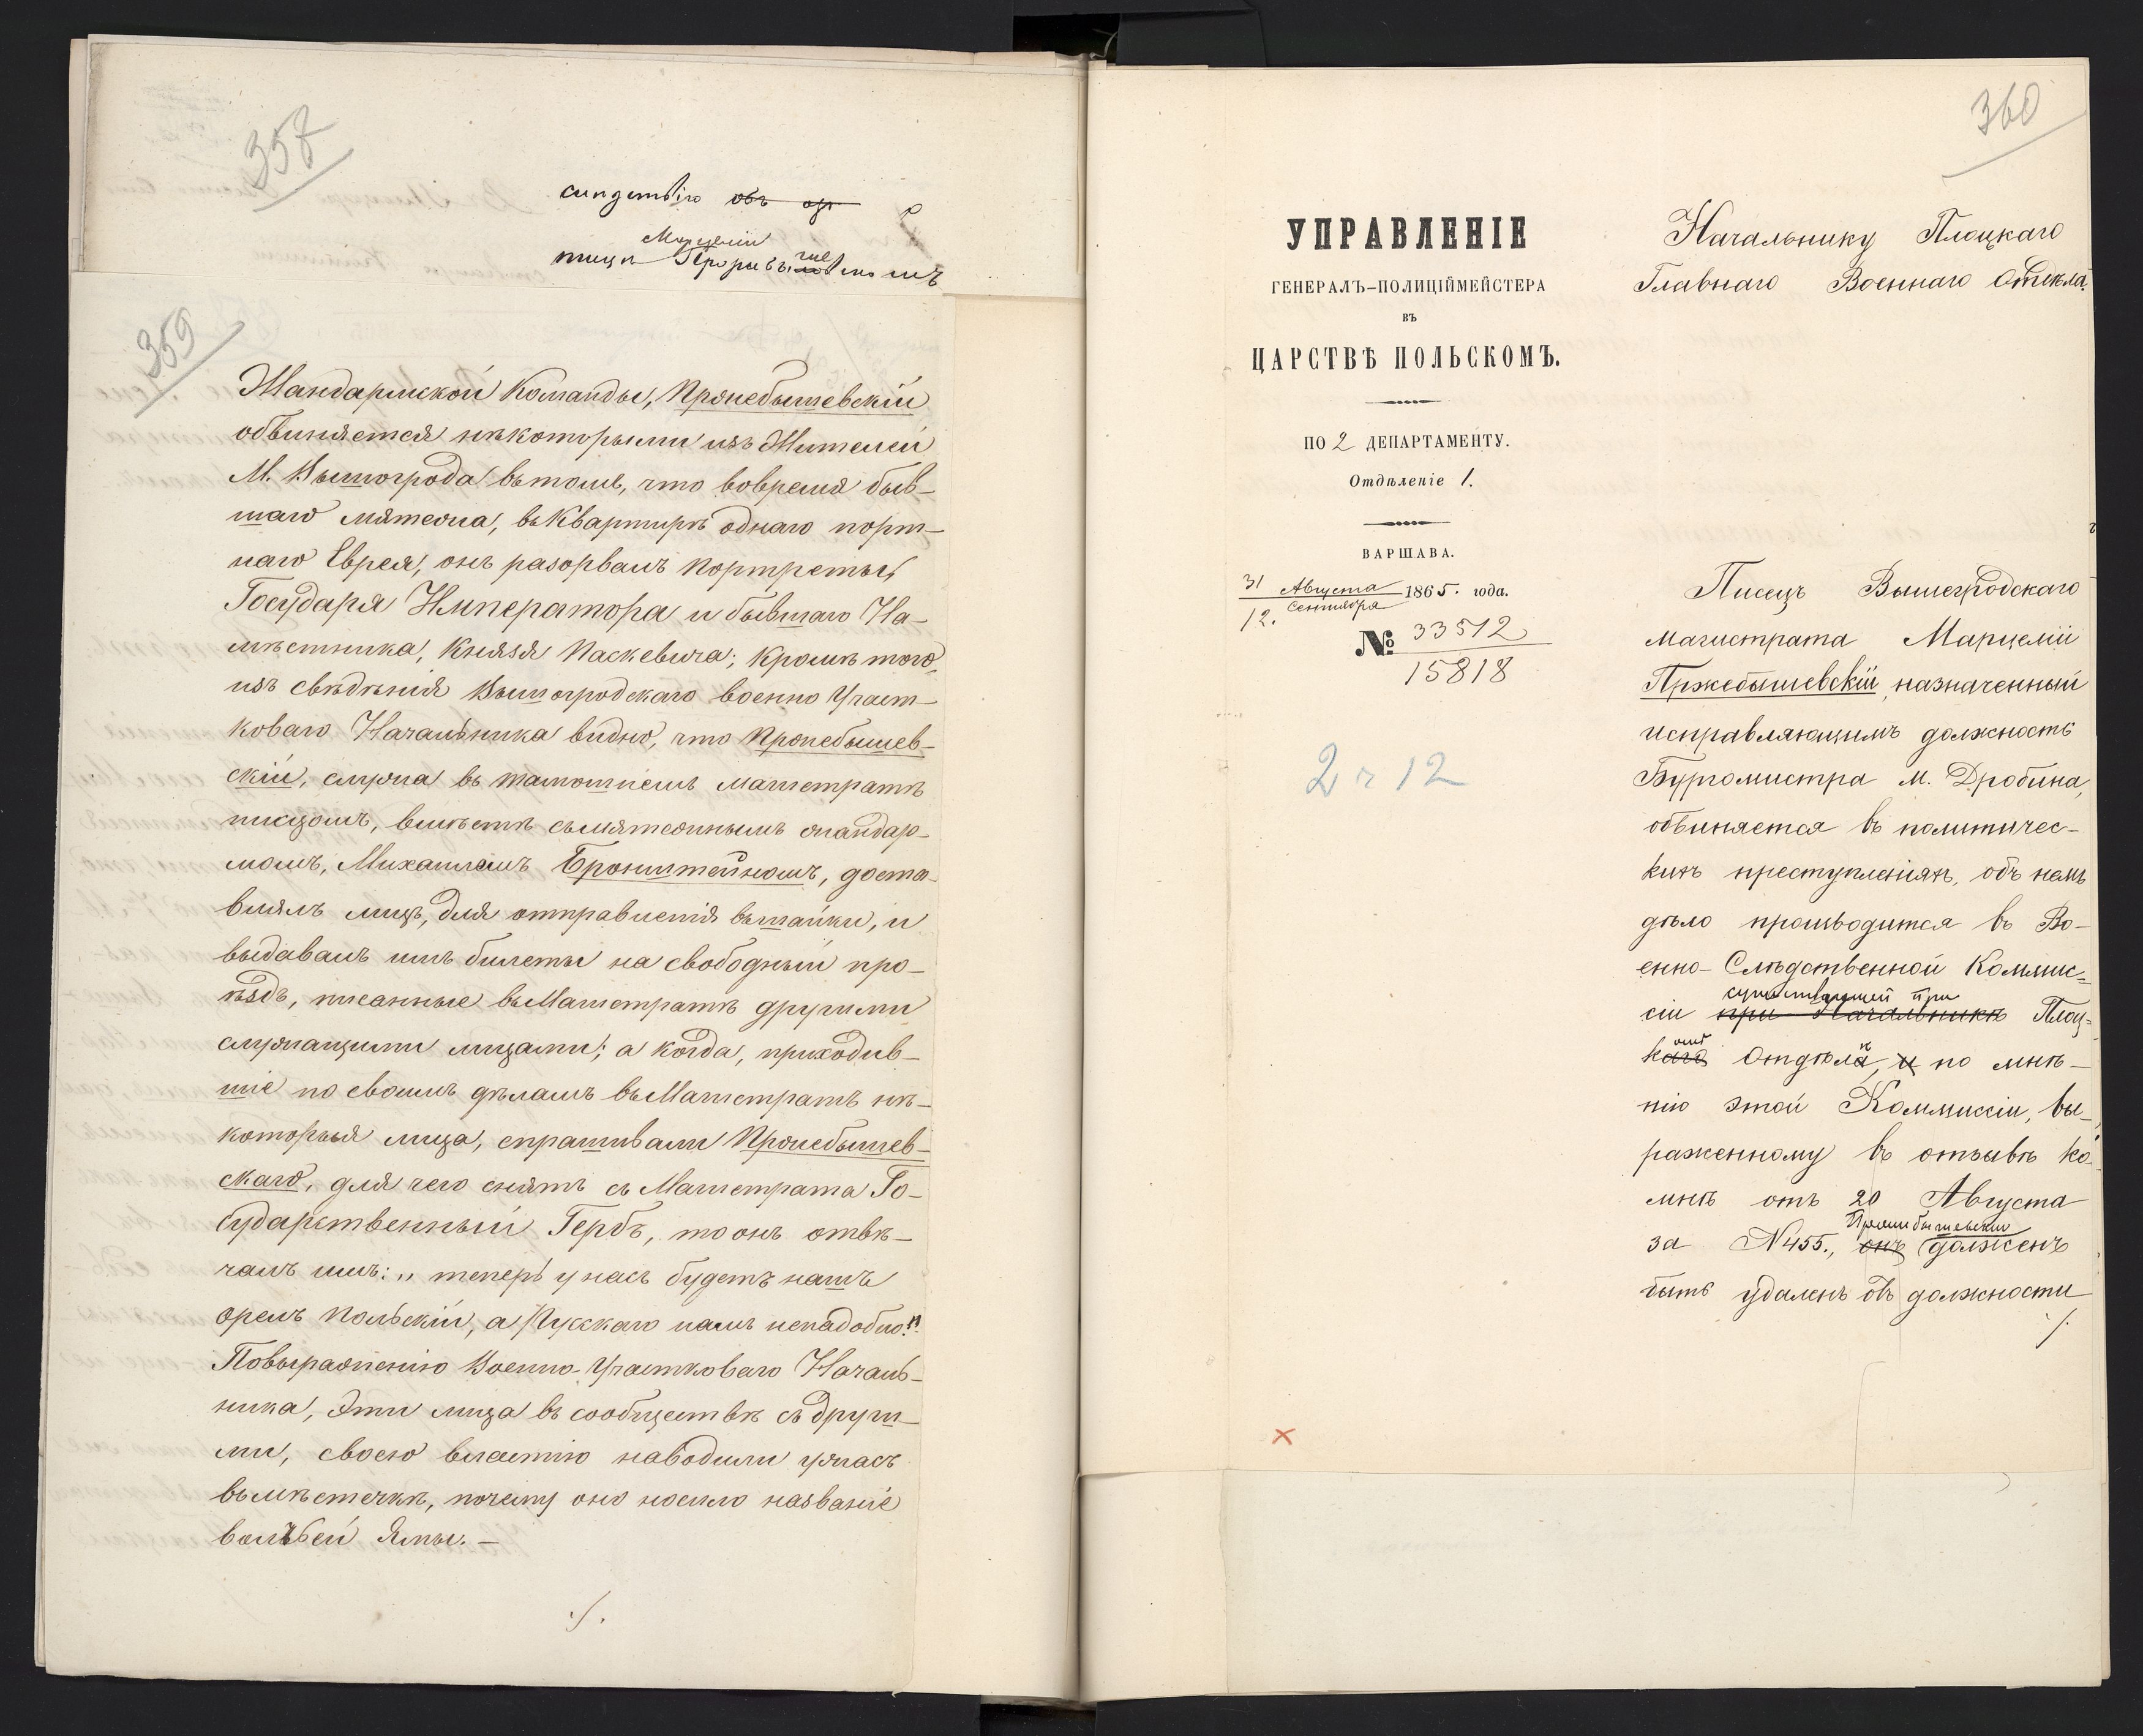 357
объ
Марцелія
359
Жандармской Команды, Пржебышевскій
обвиняется нѣкоторыми изъ Жителей
М. Вышогрода въ томъ, что вовремя быв-
шаго мятежа, въ Квартирѣ однаго порт-
наго Еврея, онъ разорвалъ портреты:
Государя Императора и бывшаго На-
мѣстника, Князя Паскевича; кромѣ того,
изъ свѣдѣнія Вышогродскаго военно Участ-
коваго Начальника видно, что Пржебышев-
скій, служа въ тамошнемъ Магистратѣ
писцомъ, вмѣстѣ съ мятежнымъ жандар-
момъ, Михаиломъ Бронштейномъ, доста-
влялъ лицъ, для отправленія въ шайки, и
выдавалъ имъ билеты на свободный про-
ѣздъ, писанные въ Магистратѣ другими
служащими лицами; а когда, приходив-
шіе по своимъ дѣламъ въ Магистратъ нѣ-
которыя лица, спрашивали Пржебышев-
скаго, для чего снятъ съ Магистрата Го-
сударственный Гербъ, то онъ отвѣ-
чалъ имъ: „теперь у насъ будетъ нашъ
орелъ Польскій, а Русскаго намъ ненадобно."
По выраженію Военно-Участковаго Началь-
ника, Эти лица въ сообществѣ съ други-
ми, своею властію наводили ужасъ
въ мѣстечкѣ, почему оно носило названіе
волчьей Ямы. –
./.
360
УПРАВЛЕНІЕ
ГЕНЕРАЛЪ-ПОЛИЦІЙМЕЙСТЕРА
ВЪ
ЦАРСТВѢ ПОЛЬСКОМЪ.
ПО 2 ДЕПАРТАМЕНТУ.
Отдѣленіе 1.
ВАРШАВА.
31 Августа 1865. года.
12. Сентября
№ 33512
15818
2 ч 12
Начальнику Плоцкаго
Главнаго Военнаго Отдѣла.
Писецъ Вышегродскаго
магистрата Марцелій
Пржебышевскій, назначенный
исправляющимъ должность
Бургомистра м. Дробина,
обвиняется въ политичес-
кихъ преступленіяхъ, объ немъ
дѣло производится въ Во-
енно-Слѣдственной Коммис-
существующей при
сіи при Начальникѣ Плоц-
омъ
каго Отдѣлѣ, и по мнѣ-
нію этой Коммиссіи, вы-
раженному въ отзывѣ ко
мнѣ отъ 20 Августа
Пржебышевскій
за N 455., онъ долженъ
быть удаленъ отъ должности
/.